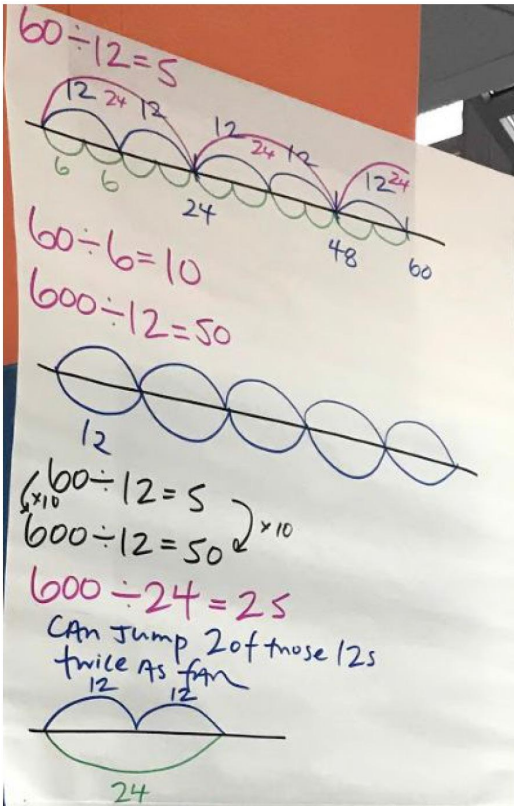 60÷12=5
12 24 12 12 24 12 12 24
6 6
24 48 60
60÷6=10
600÷12=50
12
60÷12=5
×10 ×10
600÷12=50
600÷24=25
CAN JUMP 2 of those 12s
twice AS far
12 12
24